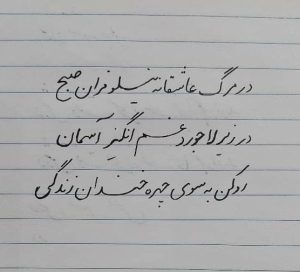 در مرگ عاشقانه نیلوفران صبح
در زیر لاجورد غم انگیز آسمان
رو کن به سوی چهره خندان زندگی